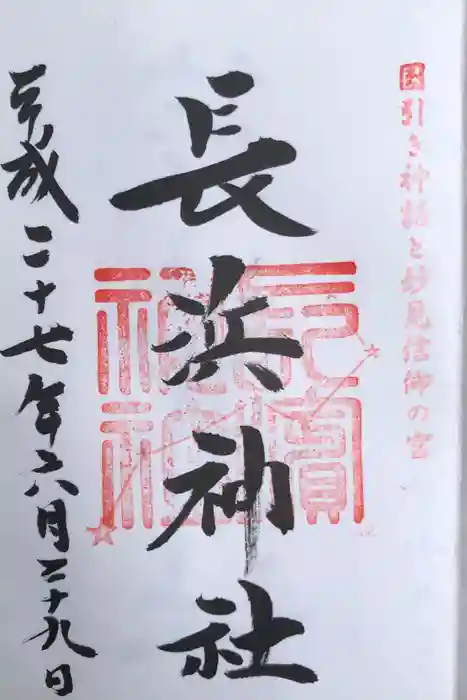 國引き神話と妙見信仰の宮
長浜神社
長濱神社
平成二十七年六月二十九日